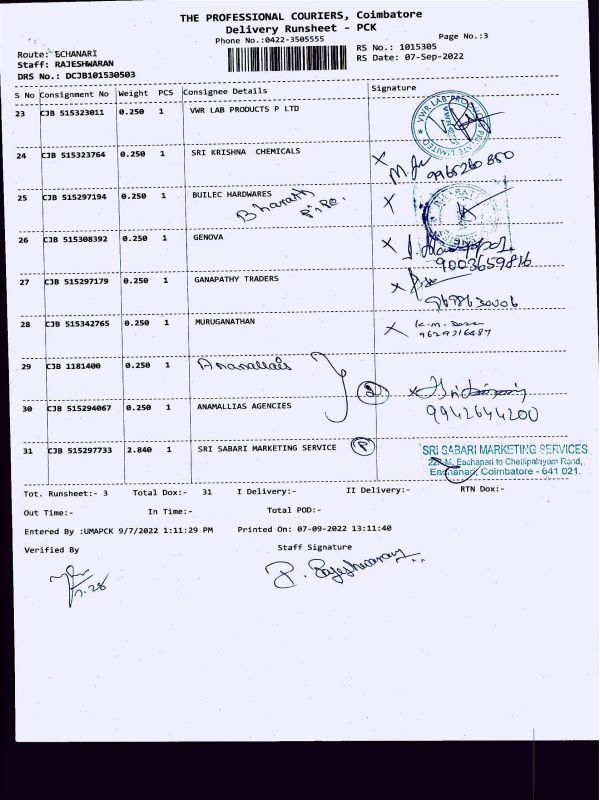 THE PROFESSIONAL COURIERS, Coimbatore
Delivery Runsheet - PCK
Phone No.:0422-3505555
Page No.:3
Route: ECHANARI
RS No.: 1015305
Staff: RAJESHWARAN
RS Date: 07-Sep-2022
DRS No.: DCJB101530503
S No Consignment No Weight PCS Consignee Details Signature
23 CJB 515323011 0.250 1 VWR LAB PRODUCTS P LTD
VWR LAB PRODUCTS PRIVATE LIMITED
24 CJB 515323764 0.250 1 SRI KRISHNA CHEMICALS
9965260850
25 CJB 515297194 0.250 1 BUILEC HARDWARES
Bharath Pipe.
26 CJB 515308392 0.250 1 GENOVA
9003659816
27 CJB 515297179 0.250 1 GANAPATHY TRADERS
28 CJB 515342765 0.250 1 MURUGANATHAN
9629316487
29 CJB 1181400 0.250 1 Anamallais
2
30 CJB 515294067 0.250 1 ANAMALLIAS AGENCIES
9942644200
31 CJB 515297733 2.840 1 SRI SABARI MARKETING SERVICE P
SRI SABARI MARKETING SERVICES
Eachanari to Chettipalayam Road,
Eachanari, Coimbatore - 641 021.
Tot. Runsheet:- 3 Total Dox:- 31 I Delivery:- II Delivery:- RTN Dox:-
Out Time:- In Time:- Total POD:-
Entered By :UMAPCK 9/7/2022 1:11:29 PM Printed On: 07-09-2022 13:11:40
Verified By Staff Signature
P. Rajeshwaran